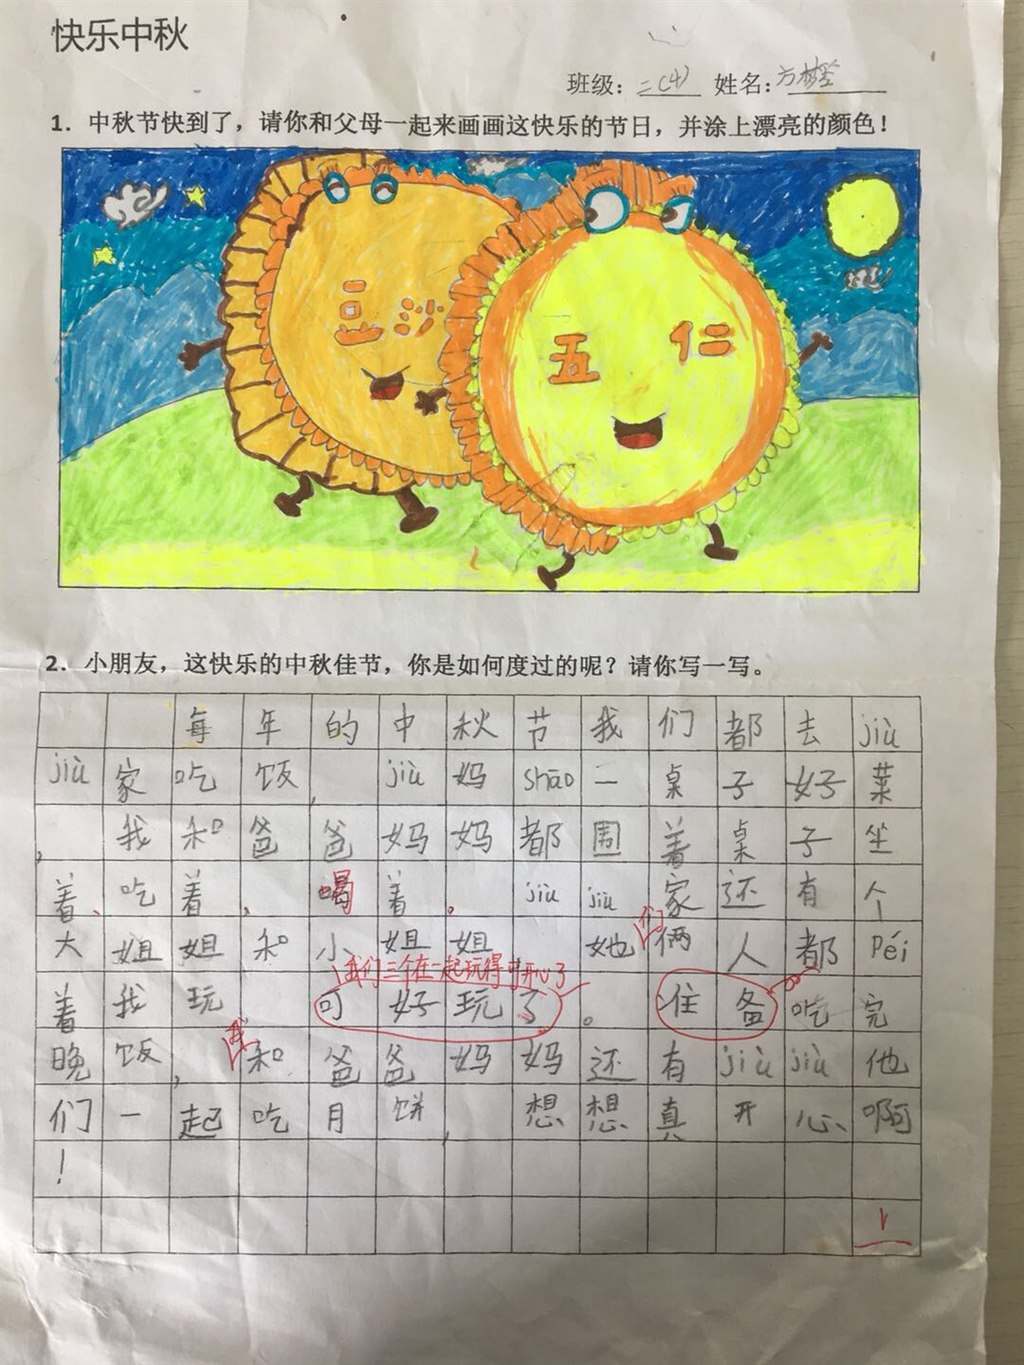 快乐中秋
班级：二（4） 姓名：方
1．中秋节快到了，请你和父母一起来画画这快乐的节日，并涂上漂亮的颜色！
豆沙
五仁
2．小朋友，这快乐的中秋佳节，你是如何度过的呢？请你写一写。
每年的中秋节我们都去jiù
jiù家吃饭，jiù妈shāo一桌子好菜
，我和爸爸妈妈都围着桌子坐
着、吃着、喝着。jiù jiù家还有个
大姐姐和小姐姐 她们俩人都Péi
我们三个在一起玩得可开心了
着我玩 可好玩了。住备吃完
晚饭，我和爸爸妈妈还有jiù jiù他
们一起吃月饼，想想真开心啊
！